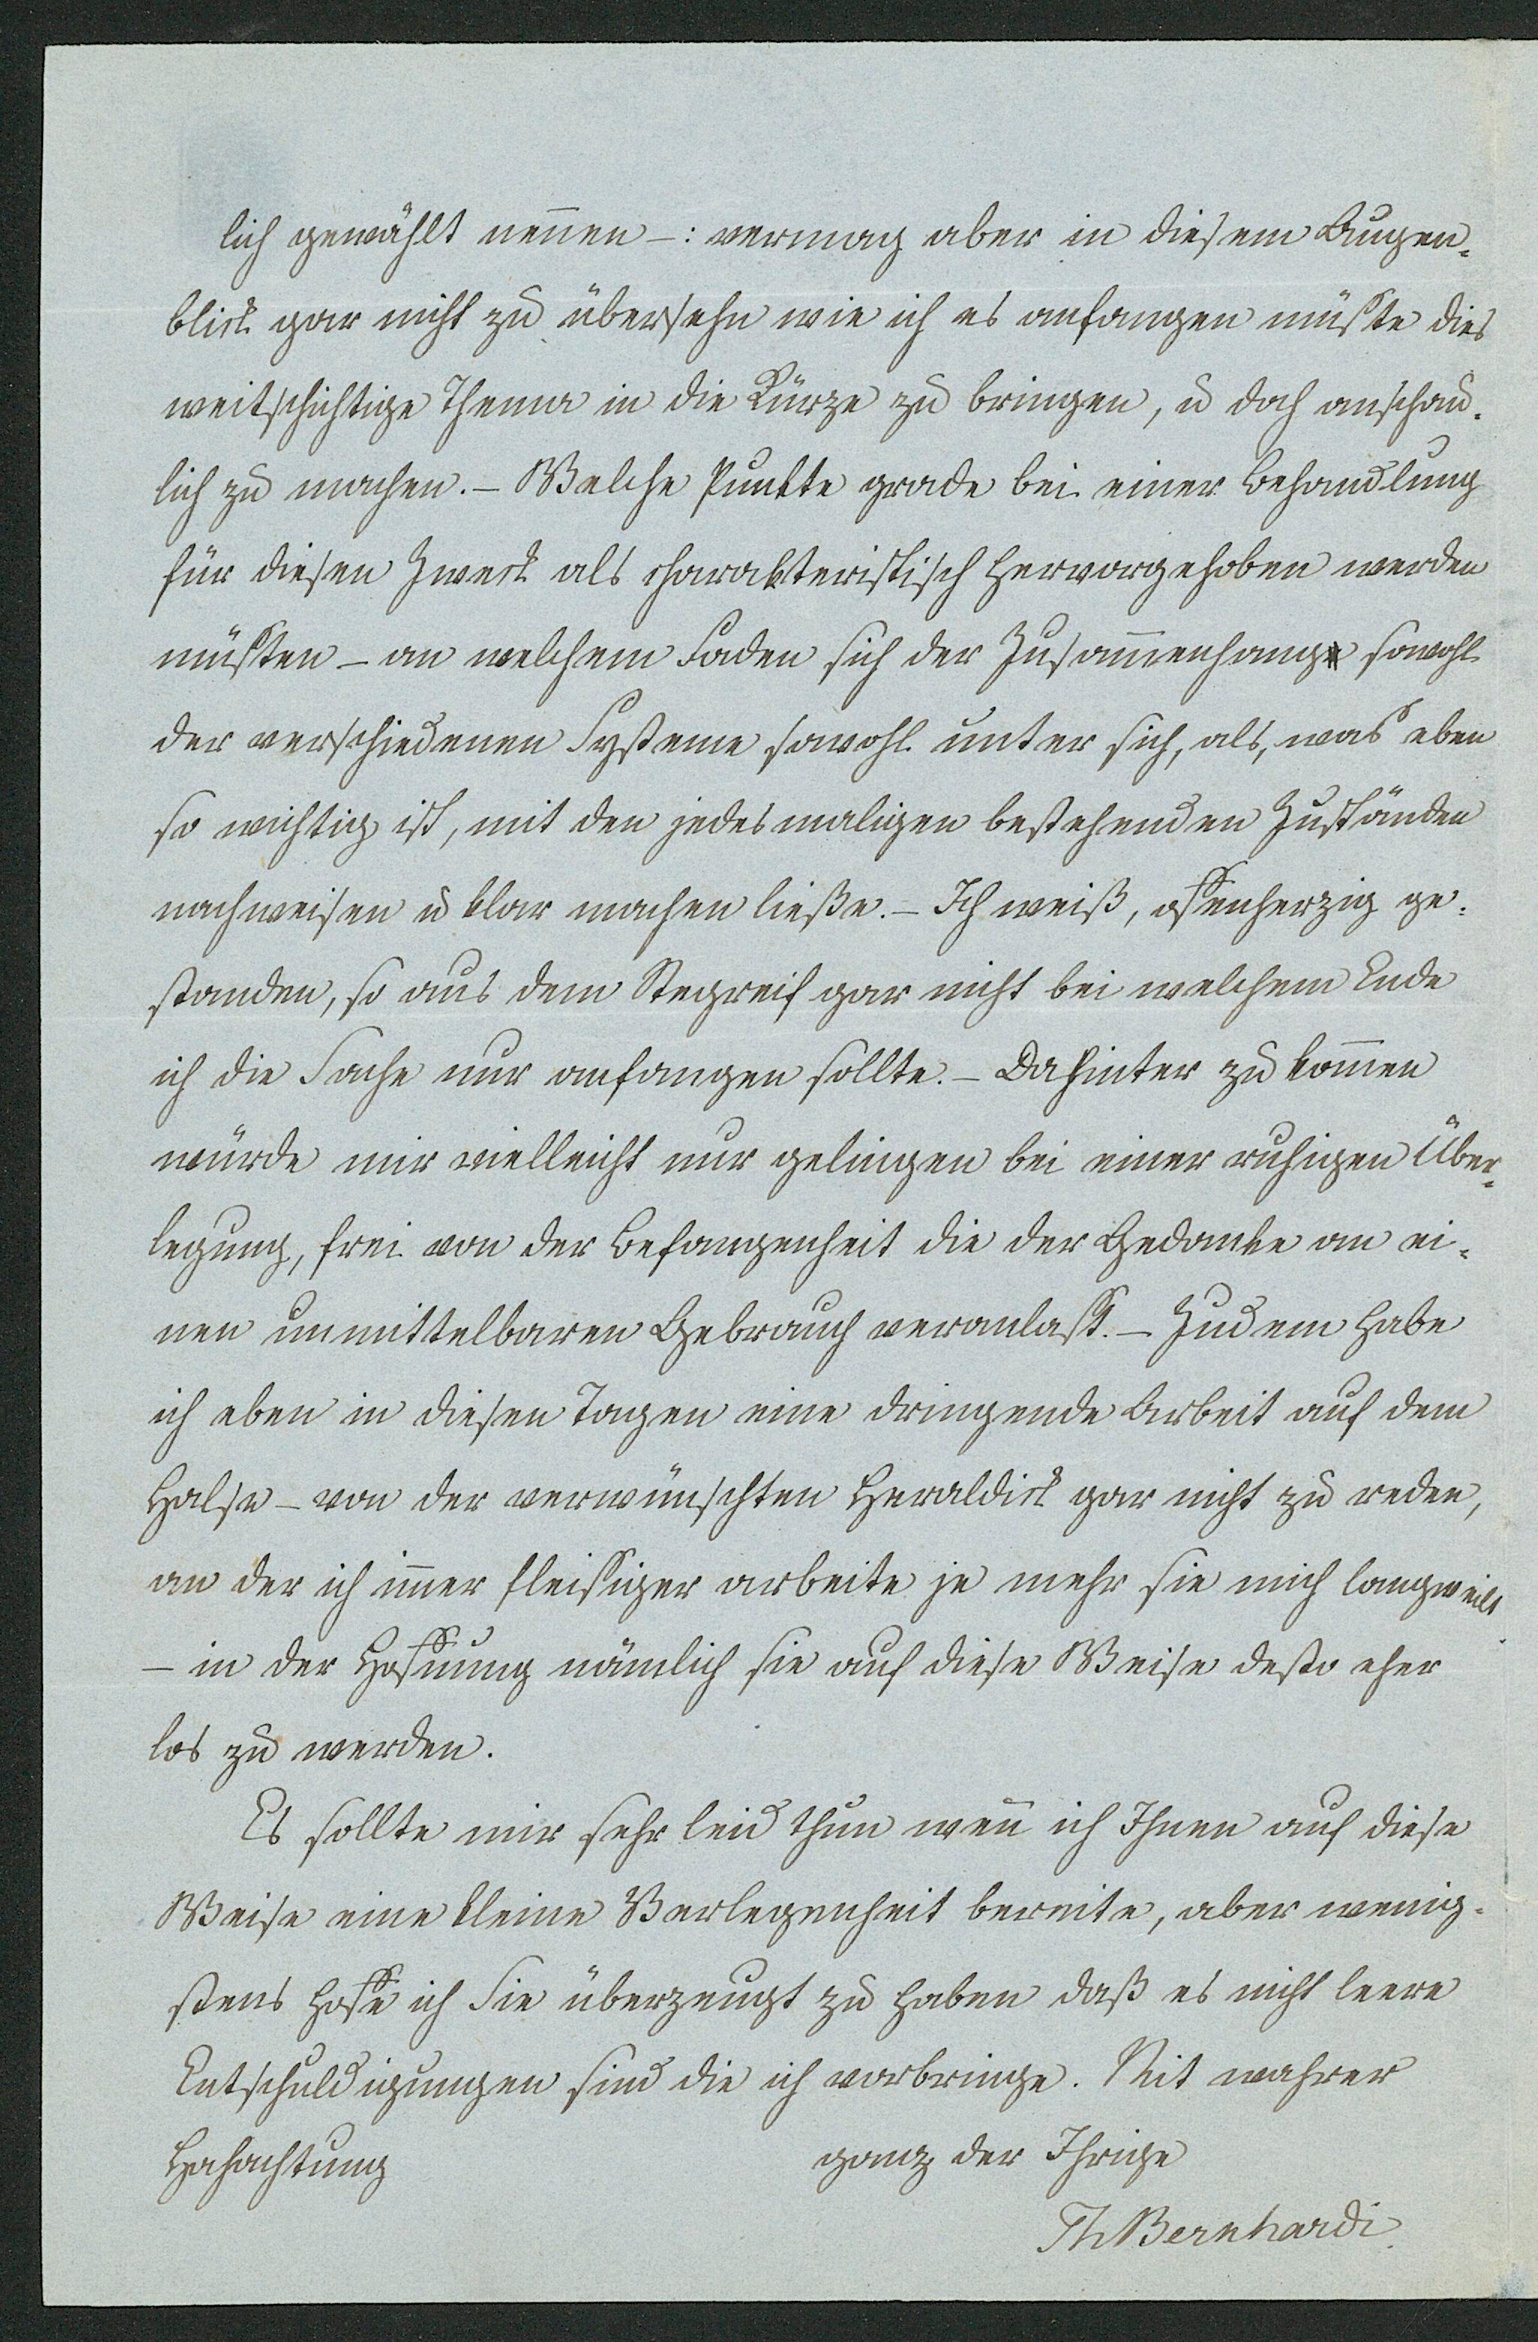 lich gewählt nen̄en –: vermag aber in diesem Augen-
blick gar nicht zu übersehn wie ich es anfangen müßte dies
weitschichtige Thema in die Kürze zu bringen, u doch anschau-
lich zu machen. – Welche Punkte grade bei einer Behandlung
für diesen Zweck als charakteristisch hervorgehoben werden
müßten – an welchem Faden sich der Zusam̄enhang sowohl
der verschiedenen Systeme sowohl unter sich, als, was eben
so wichtig ist, mit den jedesmaligen bestehenden Zuständen
nachweisen u klar machen ließe. – Ich weiß, offenherzig ge-
standen, so aus dem Stegreif gar nicht bei welchem Ende
ich die Sache nur anfangen sollte. – Dahinter zu kom̄en
würde mir vielleicht nur gelingen bei einer ruhigen Über-
legung, frei von der Befangenheit die der Gedanke an ei-
nen unmittelbaren Gebrauch veranlaßt. – Zudem habe
ich eben in diesen Tagen eine dringende Arbeit auf dem
Halse – von der verwünschten Heraldick gar nicht zu reden,
an der ich im̄er fleissiger arbeite je mehr sie mich langweilt
– in der Hoffnung nämlich sie auf diese Weise desto eher
los zu werden.
Es sollte mir sehr leid thun wen̄ ich Ihnen auf diese
Weise eine kleine Verlegenheit bereite, aber wenig-
stens hoffe ich Sie überzeugt zu haben daß es nicht leere
Entschuldigungen sind die ich vorbringe. Mit wahrer
Hochachtung ganz der Ihrige
Th Bernhardi.